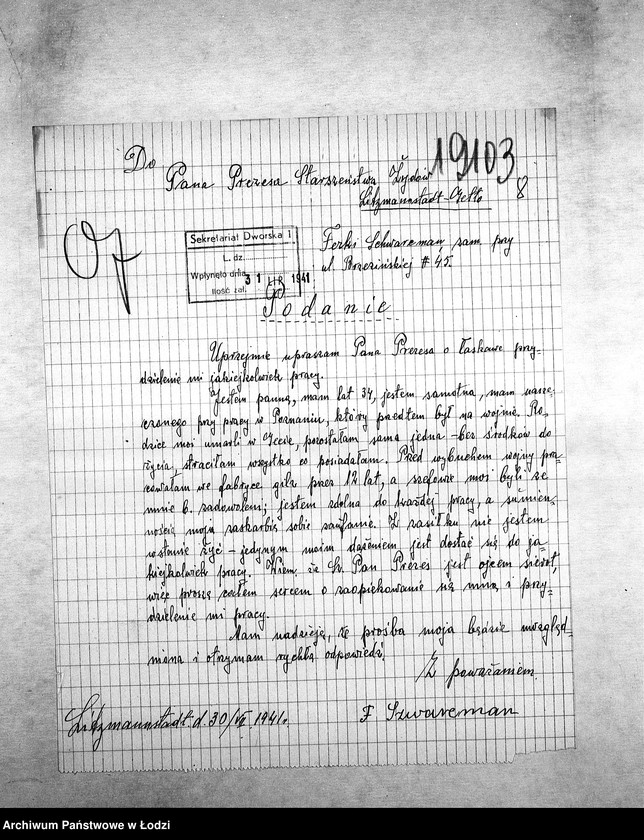 19103
Do
Pana Prezesa Starszeństwa Żydów
Litzmannstadt-Getto
8
Sekretariat Dworska 1
L. dz.
Wpłynęło dnia 31 1941
Ilość zał.
Ferki Schwarcman, zam. przy
ul. Brzezińskiej # 45.
Podanie
Uprzejmie upraszam Pana Prezesa o łaskawe przy-
dzielenie mi jakiejkolwiek pracy.
Jestem panną, mam lat 34, jestem samotna, mam narze-
czonego przy pracy w Poznaniu, który przedtem był na wojnie. Ro-
dzice moi umarli w Getcie, pozostałam sama jedna - bez środków do
życia, straciłam wszystko co posiadałam. Przed wybuchem wojny pra-
cowałam we fabryce gilz przez 12 lat, a szefowie moi byli ze
mnie b. zadowoleni; jestem zdolna do każdej pracy, a sumien-
nością moją zaskarbię sobie zaufanie. Z zasiłku nie jestem
w stanie żyć - jedynym moim dążeniem jest dostać się do ja-
kiejkolwiek pracy. Wiem, że Sz. Pan Prezes jest ojcem sierot,
więc proszę całem sercem o zaopiekowanie się mną i przy-
dzielenie mi pracy.
Mam nadzieję, że prośba moja będzie uwzględ-
niona i otrzymam rychłą odpowiedź.
Z poważaniem
Litzmannstadt d. 30/VII. 1941r.
F Szwarcman
Archiwum Państwowe w Łodzi